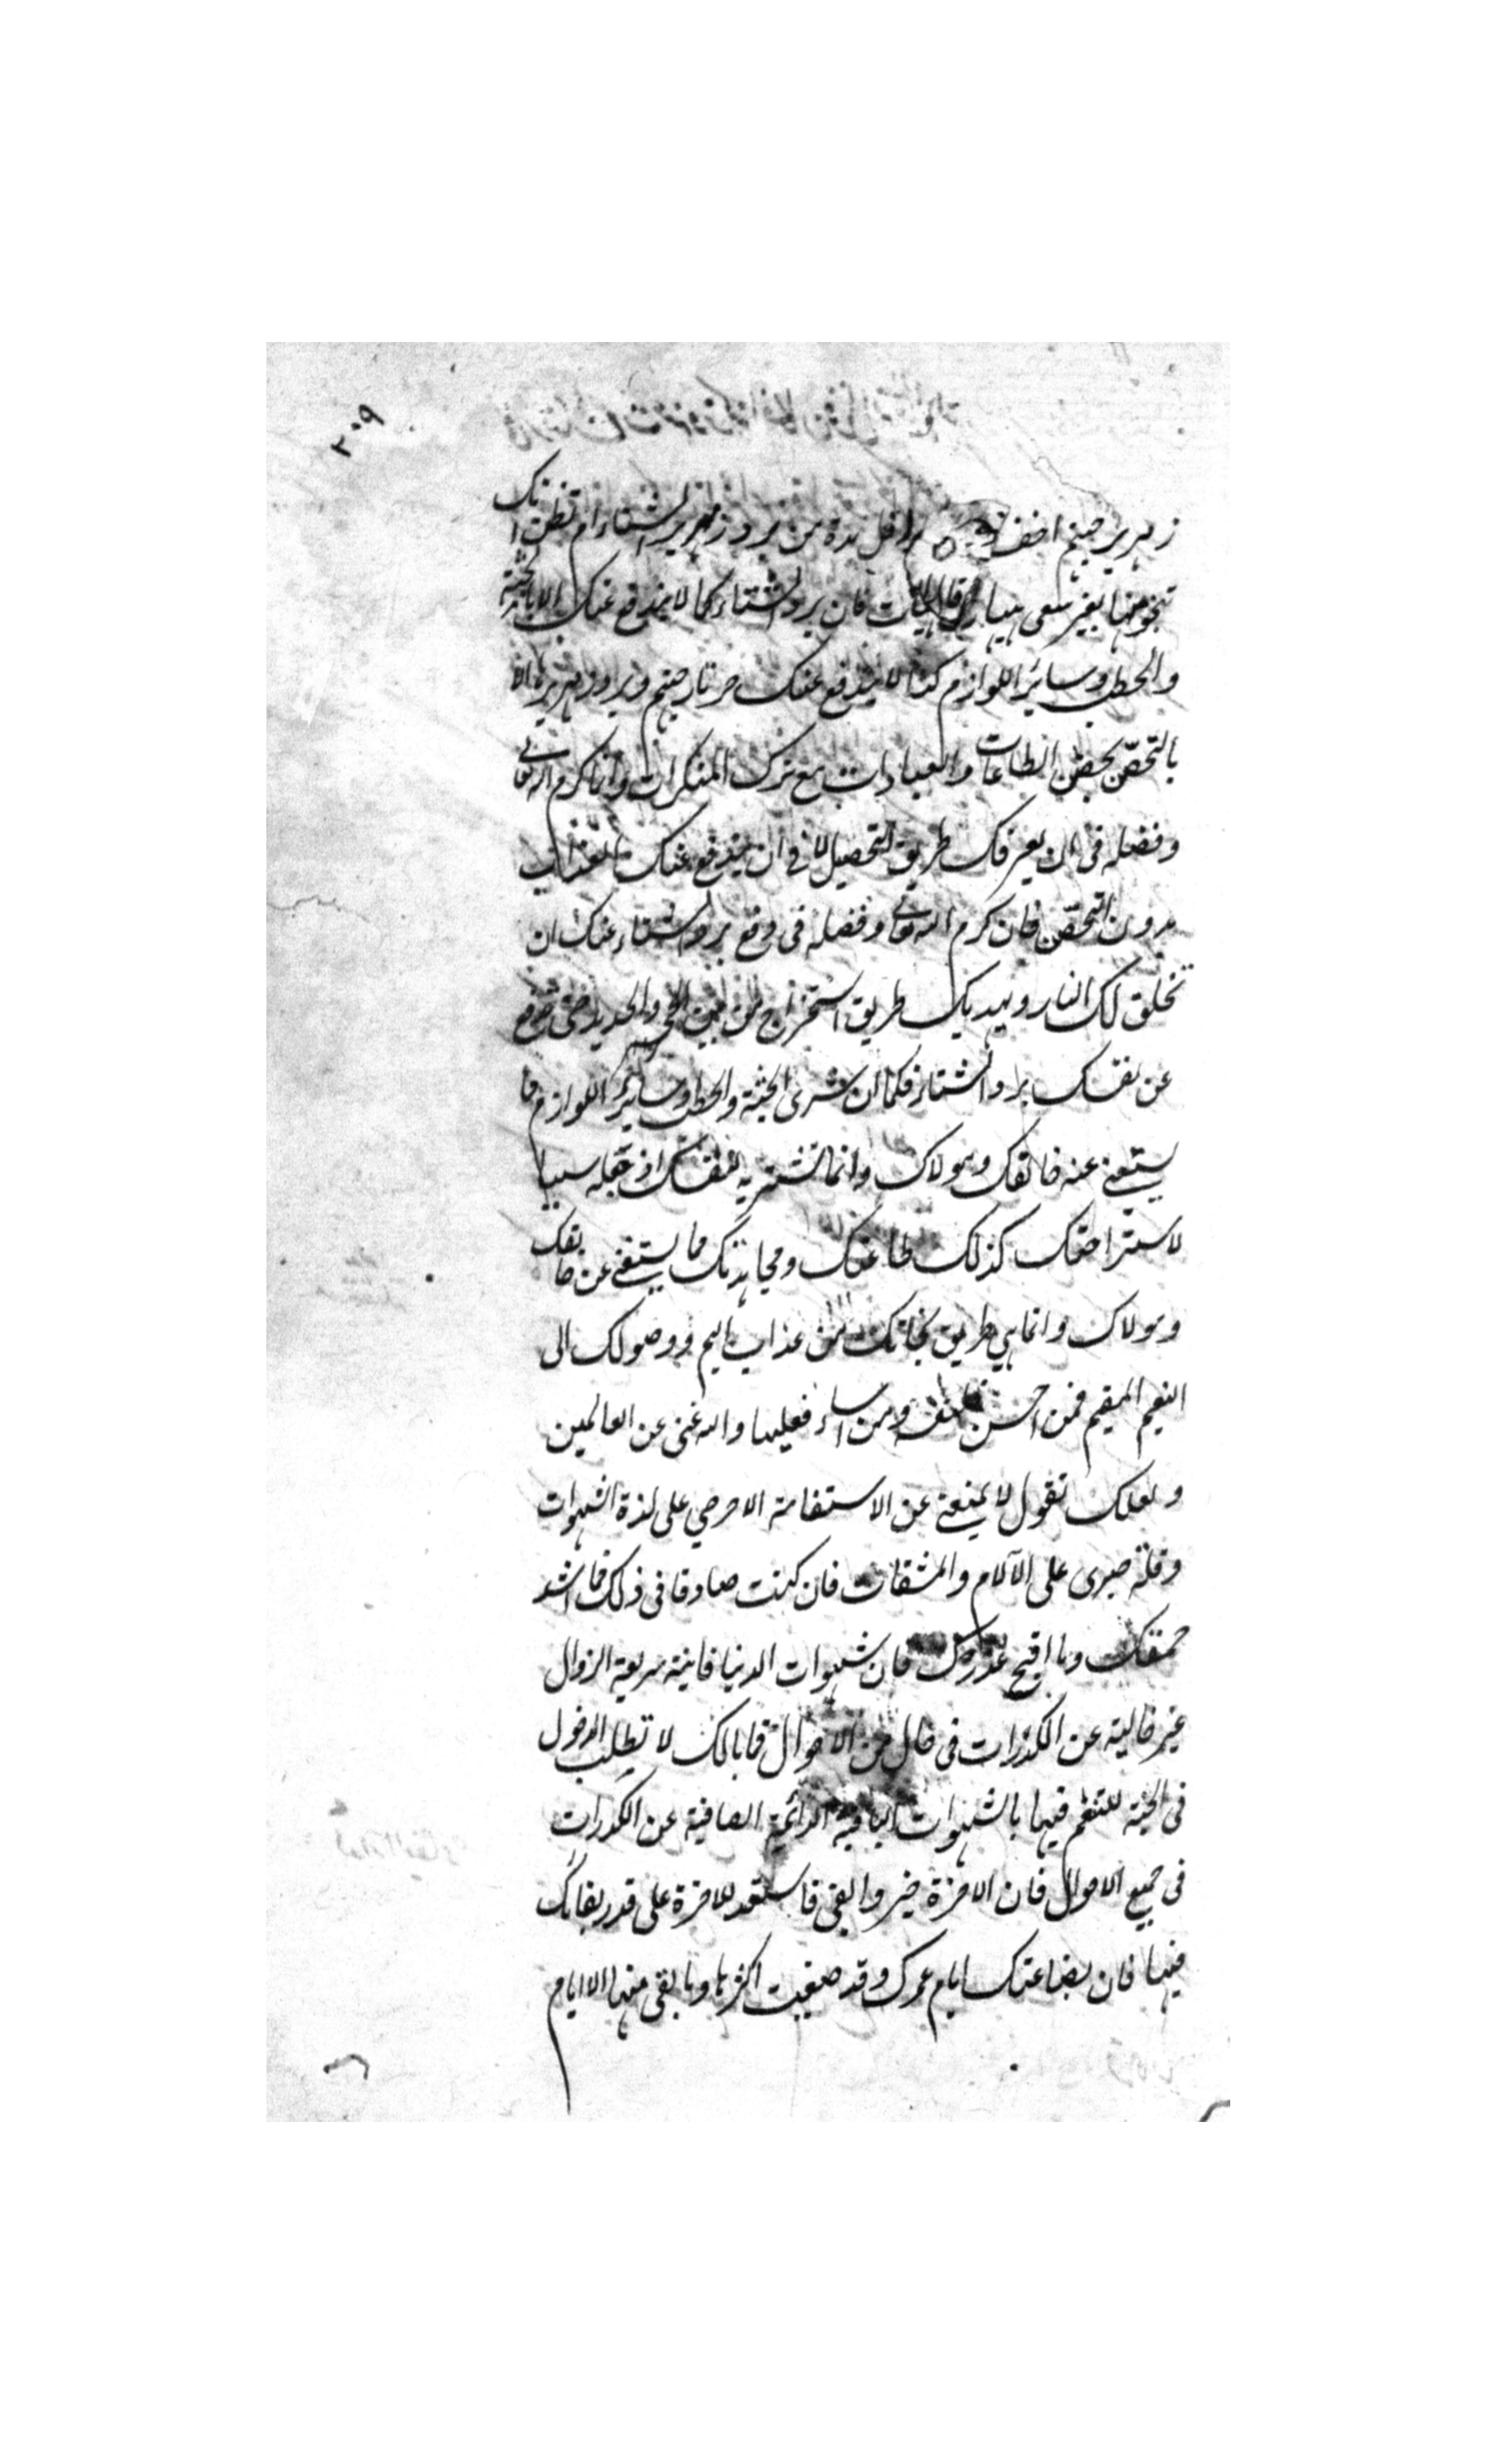 ٢٠٩
زمهرير جهنم اخف برد واقل مدة من برد زمهرير الشتاء ام تظن انك
تنجو منها بغير سعى هيهات هيهات فان برد الشتاء كما لا يندفع عنك الا بالجبة
والحطب وسائر اللوازم كذا لا يندفع عنك حر نار جهنم وبرد زمهريرها الا
بالتحصّن بحصن الطاعات والعبادات مع ترك المنكرات وانما كرم الله تعالى
وفضله فى ان يعرفك طريق التحصيل لا فى ان يندفع عنك العذاب
بدون التحصّن فان كرم الله تعالى وفضله فى دفع برد الشتاء عنك ان
تخلق لك النار ويهديك طريق استخراج من بين الحجر والحديد حتى تدفع
عن نفسك برد الشتاء فكما ان شرى الجبة والحطب وسائر اللوازم مما
يستغنى عنه خالقك ومولاك وانما تشتريه لنفسك اذ جعله سببا
لاستراحتك كذلك طاعتك ومجاهدتك مما يستغنى عن خالقك
ومولاك وانما هي طريق نجاتك من عذاب اليم ووصولك الى
النعيم المقيم فمن احسن فلنفسه ومن اساء فعليها والله غنى عن العالمين
ولعلك تقول لا يمنعنى عن الاستقامة الا حرصي على لذة الشهوات
وقلة صبرى على الآلام والمشقات فان كنت صادقا فى ذلك فما اشد
حمقك وما اقبح عذرك فان شهوات الدنيا فانية سريعة الزوال
غير خالية عن الكدرات فى حال من الاحوال فما بالك لا تطلب الدخول
فى الجنة للتنعم فيها بالشهوات الباقية الدائمة الصافية عن الكدرات
فى جميع الاحوال فان الاخرة خير وابقى فاستعد للاخرة على قدر بقائك
فيها فان بضاعتك ايام عمرك وقد ضيعت اكثرها وما بقى منها الا ايام